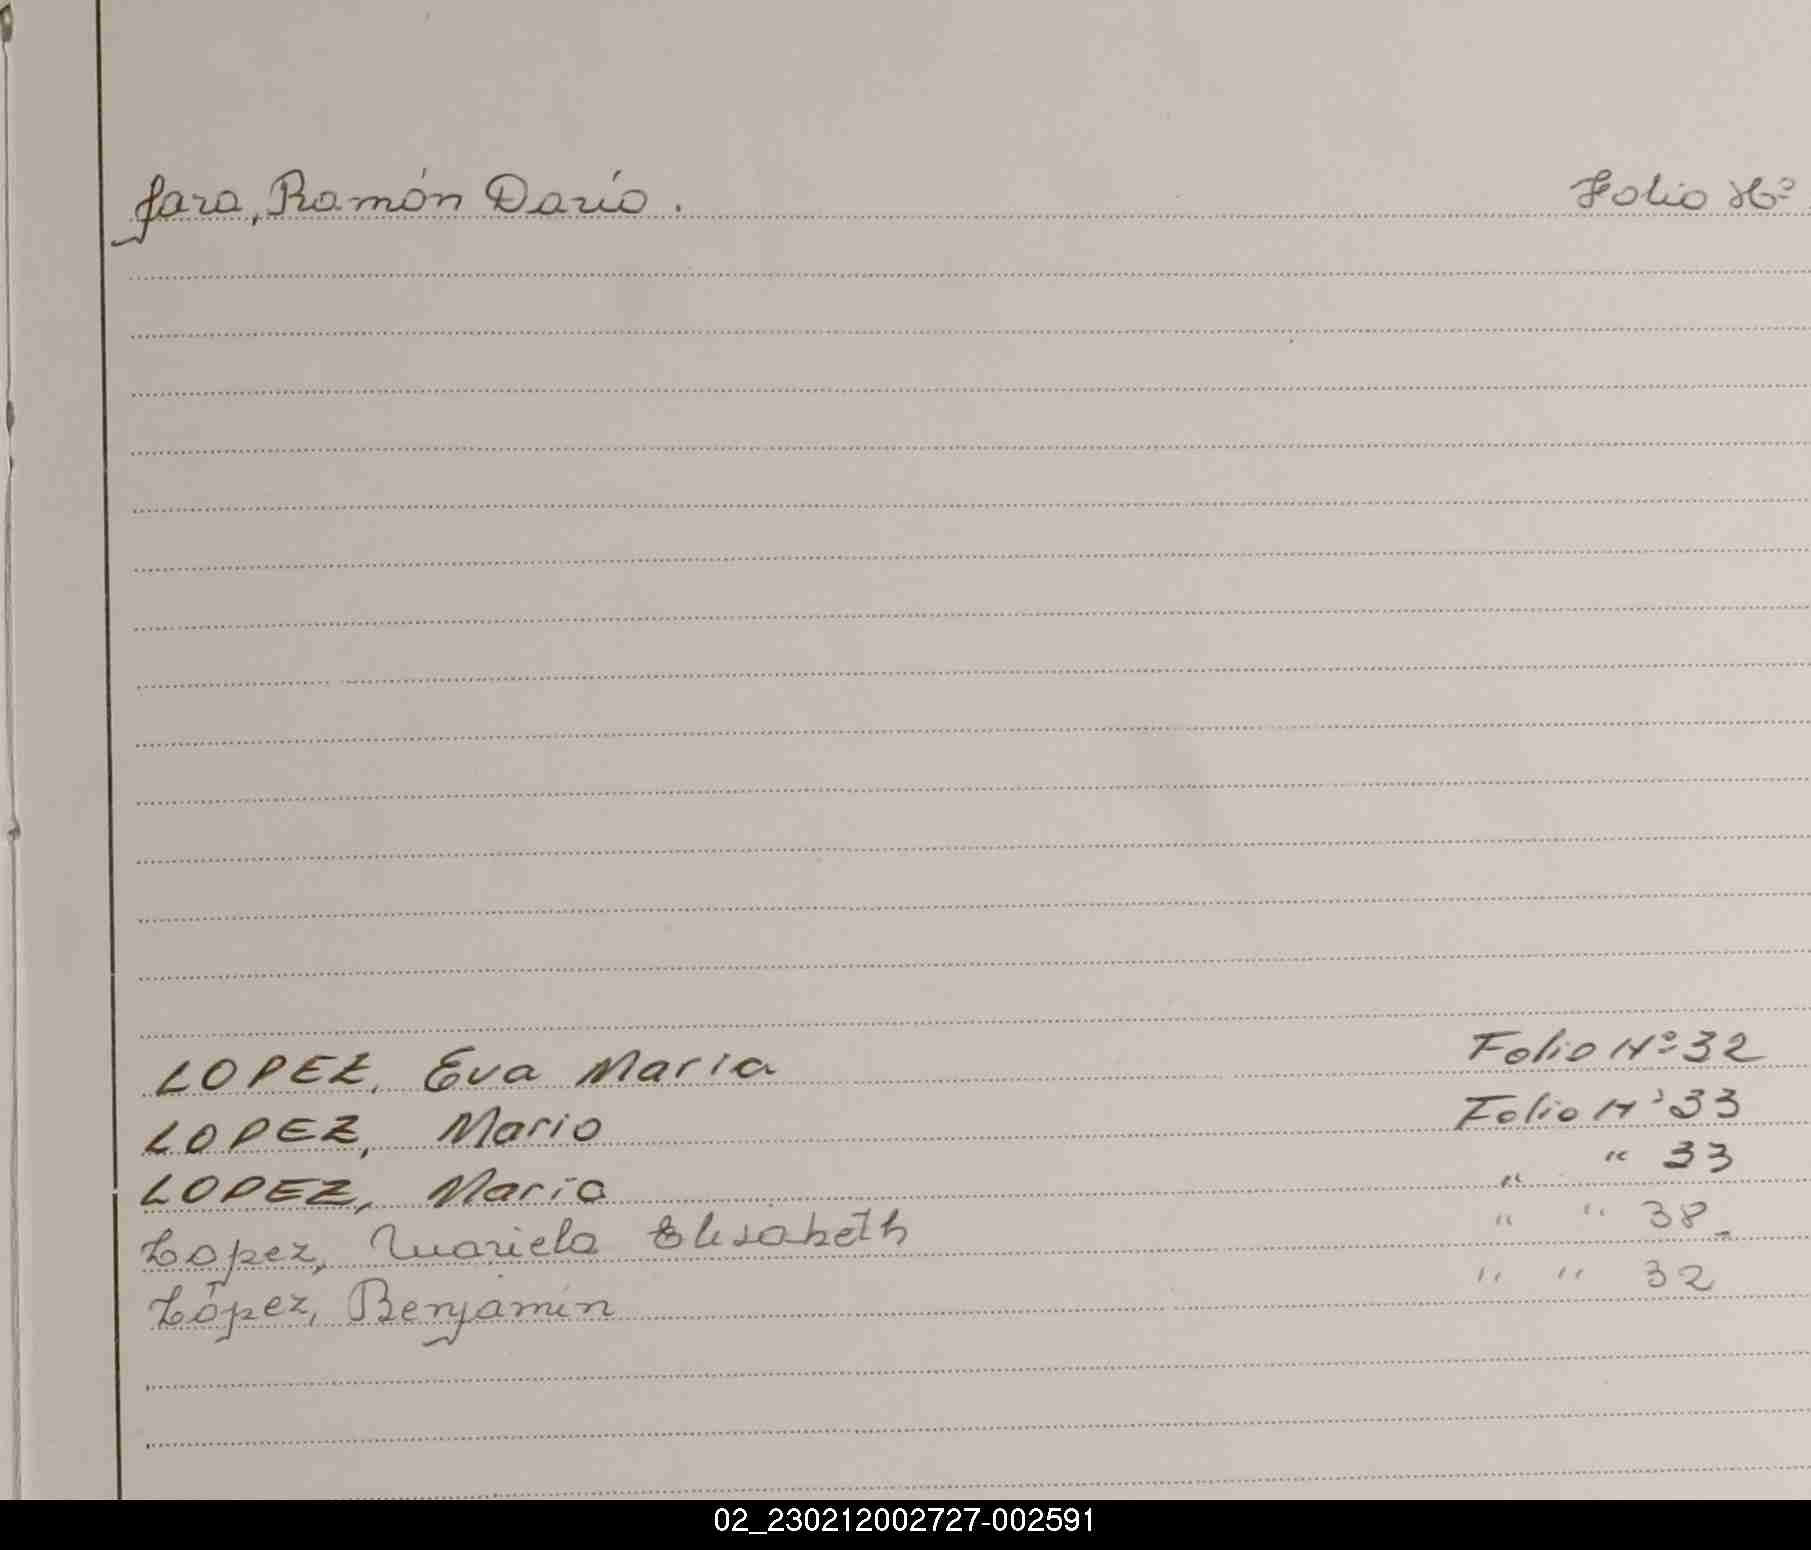 Jara, Ramón Darío. Folio Nº
LOPEZ, Eva Maria Folio Nº 32
LOPEZ, Mario Folio Nº 33
LOPEZ, Maria " " 33
Lopez, Mariela Elisabeth " " 38_
López, Benjamin " " 32
02_230212002727-002591